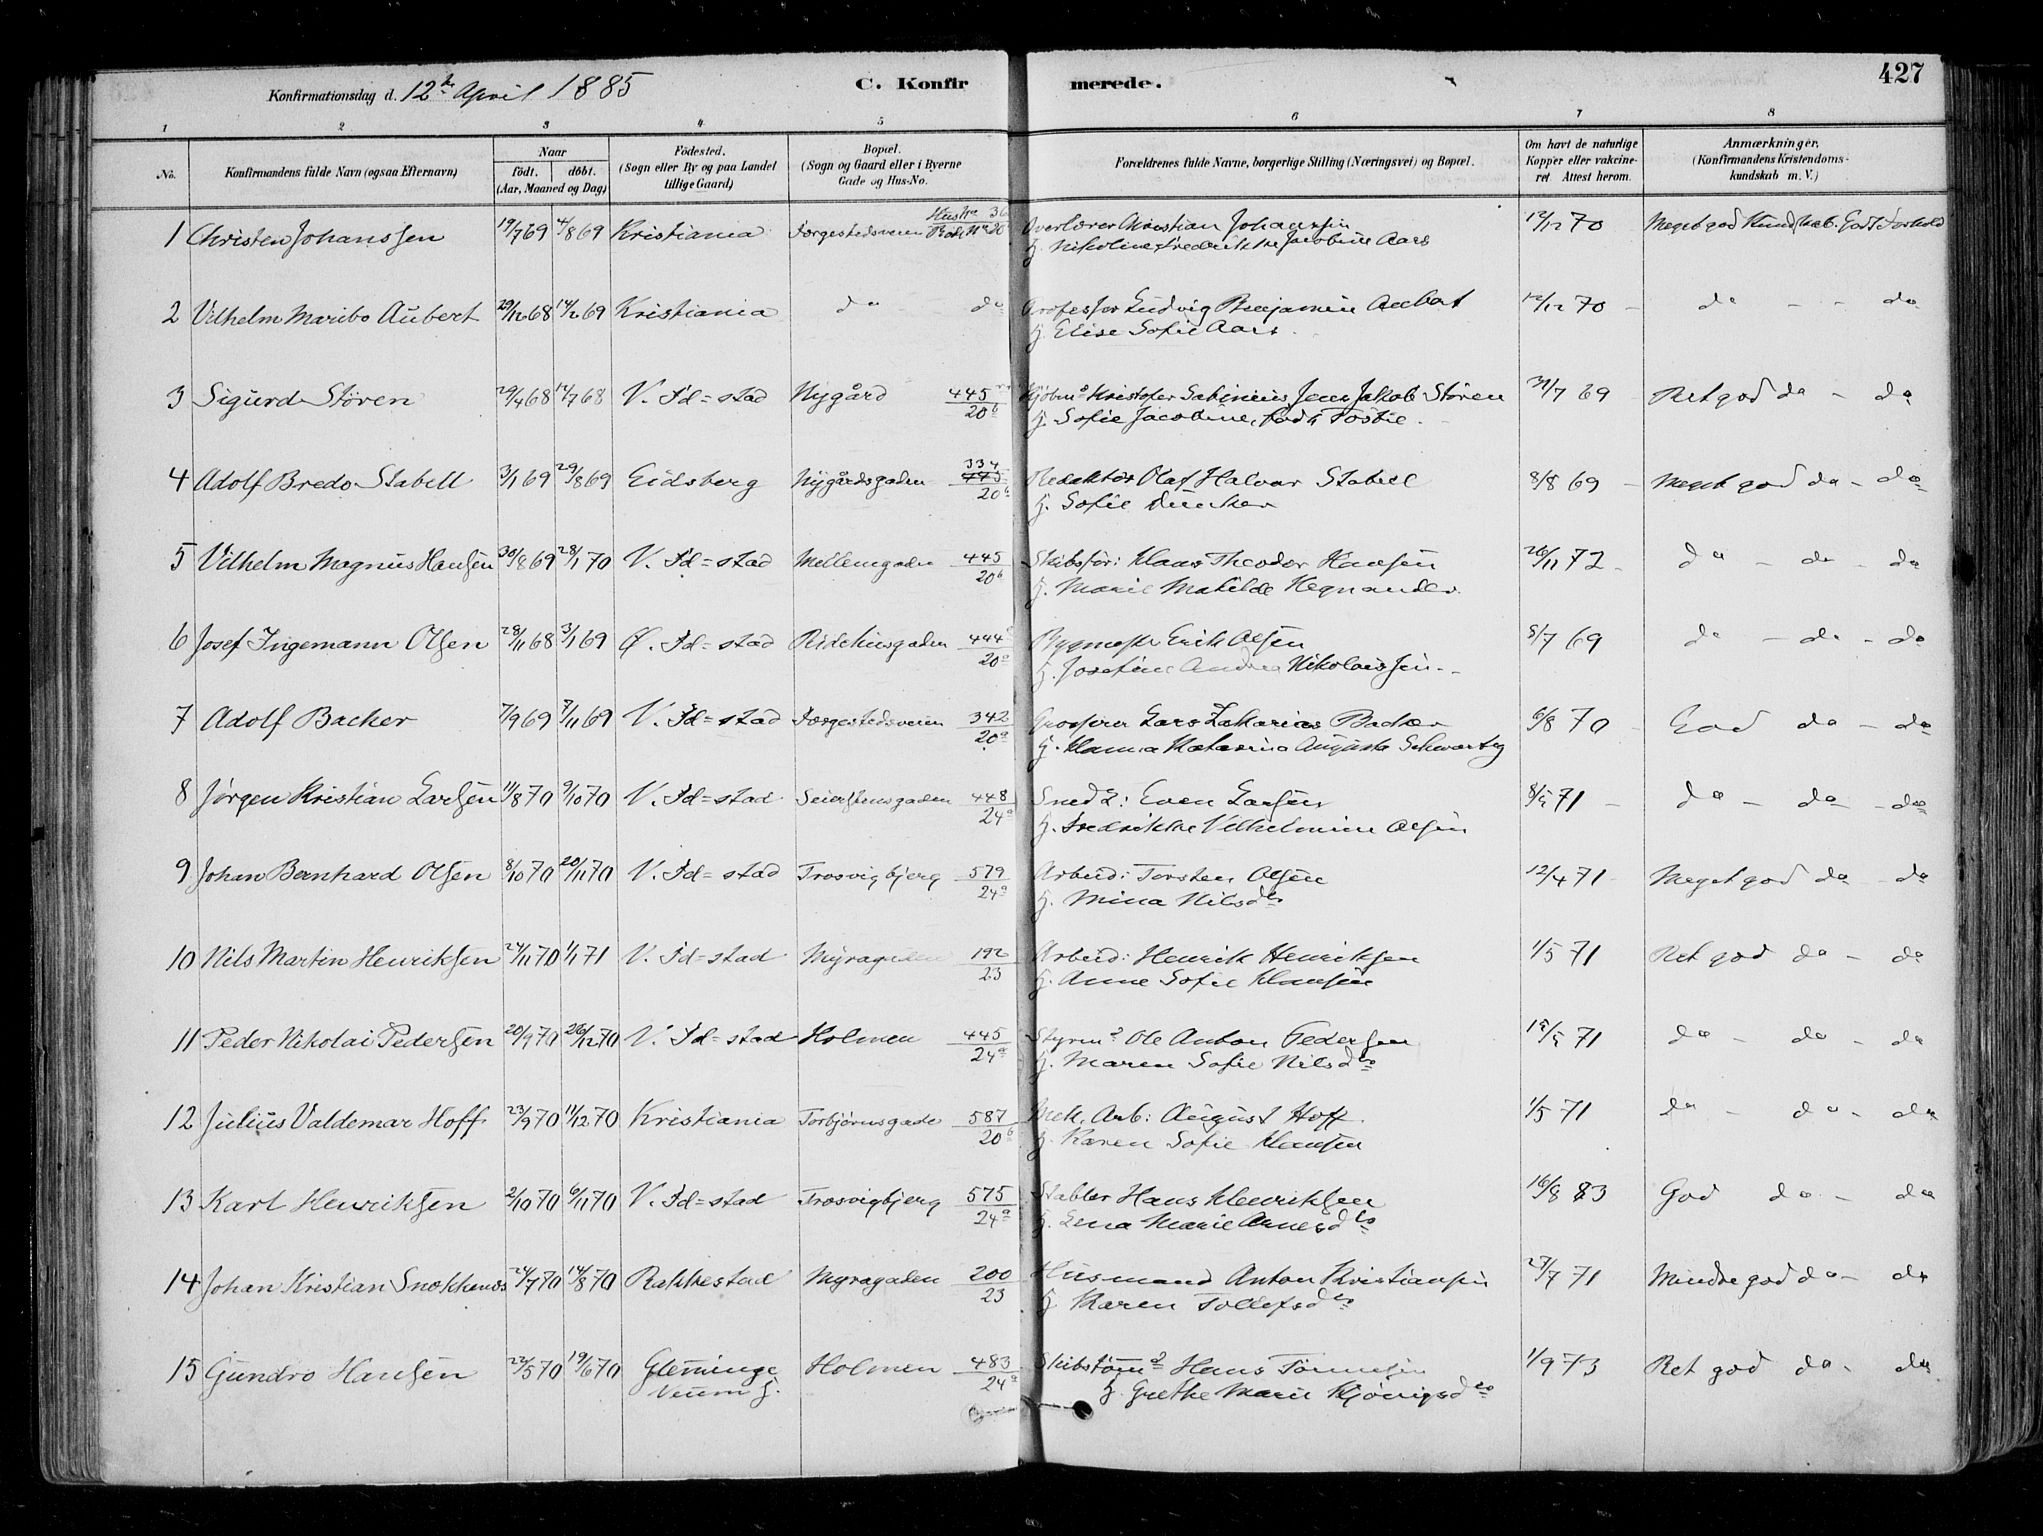 427
Konfirmationsdag d. 12te April 1885 C. Konfirmerede.
1 2 3 4 5 6 7 8
No. Konfirmandens fulde Navn (ogsaa Efternavn) Naar födt. döbt. (Aar, Maaned og Dag) Födested. (Sogn eller By og paa Landet tillige Gaard) Bopæl. (Sogn og Gaard eller i Byerne Gade og Hus-No. Forældrenes fulde Navne, borgerlige Stilling (Næringsvei) og Bopæl. Om havt de naturlige Kopper eller vakcineret. Attest herom. Anmærkninger, (Konfirmandens Kristendomskundskab m. V.)
1 Christen Johanssen 19/7 69 4/8 69 Kristiania Færgestedsveien Hus No 36 Overlærer Christian Johanssen 12/12 70 Meget god Kundskab. Godt Forhold
H. Nikoline Fredrikke Jacobine Aars
2 Vilhelm Maribo Aubert 29/12 68 14/2 69 Kristiania do do Professor Ludvig Benjamin Aubert 12/12 70 do - - do
H. Elise Sofie Aars
3 Sigurd Støren 29/4 68 12/7 68 V. Fd=stad Nygård 445/20b Kjøbmd Kristofer Sabinius Jens Jakob Støren 31/7 69 Ret god do - do
H. Sofie Jacobine, født Tostie.
4 Adolf Bredo Stabell 3/1 69 29/8 69 Eidsberg Nygårdsgaden 334 445/20b Redaktør Olaf Halvor Stabell 8/8 69 Meget god do - do
H. Sofie Duncker
5 Vilhelm Magnus Hansen 30/8 69 28/1 70 V. Fd=stad Mellemgaden 445/20b Skibsfør: Klaus Theodor Hansen 26/11 72 do - do - do
H. Marie Matilde Hegnander
6 Josef Ingemann Olsen 28/11 68 3/1 69 Ø. Fd=stad Ridehusgaden 444/20a Bygmestr Erik Olsen 5/7 69 do - do - do
H. Josefine Andrea Nikolaissen
7 Adolf Backer 7/9 69 7/11 69 V. Fd=stad Færgestedsveien 342/20a Grosserer Lars Zakarias Backer 6/8 70 God do - do
H. Hanna Katarina Augusta Schwartz
8 Jørgen Kristian Larsen 11/8 70 9/10 70 V. Fd=stad Seierstensgaden 448/24a Sned2: Even Larsen 8/5 71 do - do - do
H. Fredrikke Vilhelmine Olsen
9 Johan Bernhard Olsen 8/10 70 20/11 70 V. Fd=stad Trosvigbjerg 579/24a Arbeid: Torsten Olsen 12/4 71 Meget god do - do
H. Mina Nilsdtr
10 Nils Martin Henriksen 24/11 70 1/1 71 V. Fd=stad Myragaden 192/23 Arbeid: Henrik Henriksen 1/5 71 Ret god do - do
H. Anne Sofie Klausen
11 Peder Nikolai Pedersen 20/9 70 26/12 70 V. Fd=stad Holmen 445/24a Styrmd Ole Anton Pedersen 15/5 71 do - do - do
H. Maren Sofie Nilsdtr
12 Julius Valdemar Hoff 23/9 70 11/12 70 Kristiania Torbjørnsgade 587/20b Mek. Arb: August Hoff 1/5 71 do - do - do
H. Karen Sofie Klausen
13 Karl Henriksen 2/10 70 6/11 70 V. Fd=stad Trosvigbjerg 575/24a Stabler Hans Henriksen 16/8 83 God do - do
H. Lena Marie Arnesdtr
14 Johan Kristian Snekkenæs 24/7 70 14/8 70 Rakkestad Myragaden 200/23 Husmand Anton Kristiansen 27/7 71 Mindre god do - do
H. Karen Tollefsdtr
15 Gundro Hansen 22/5 70 19/6 70 Glemminge Holmen 483/24a Skibstømd Hans Tønnesen 1/9 73 Ret god do - do
Veum g. H. Grethe Marie Kjønigsdtr